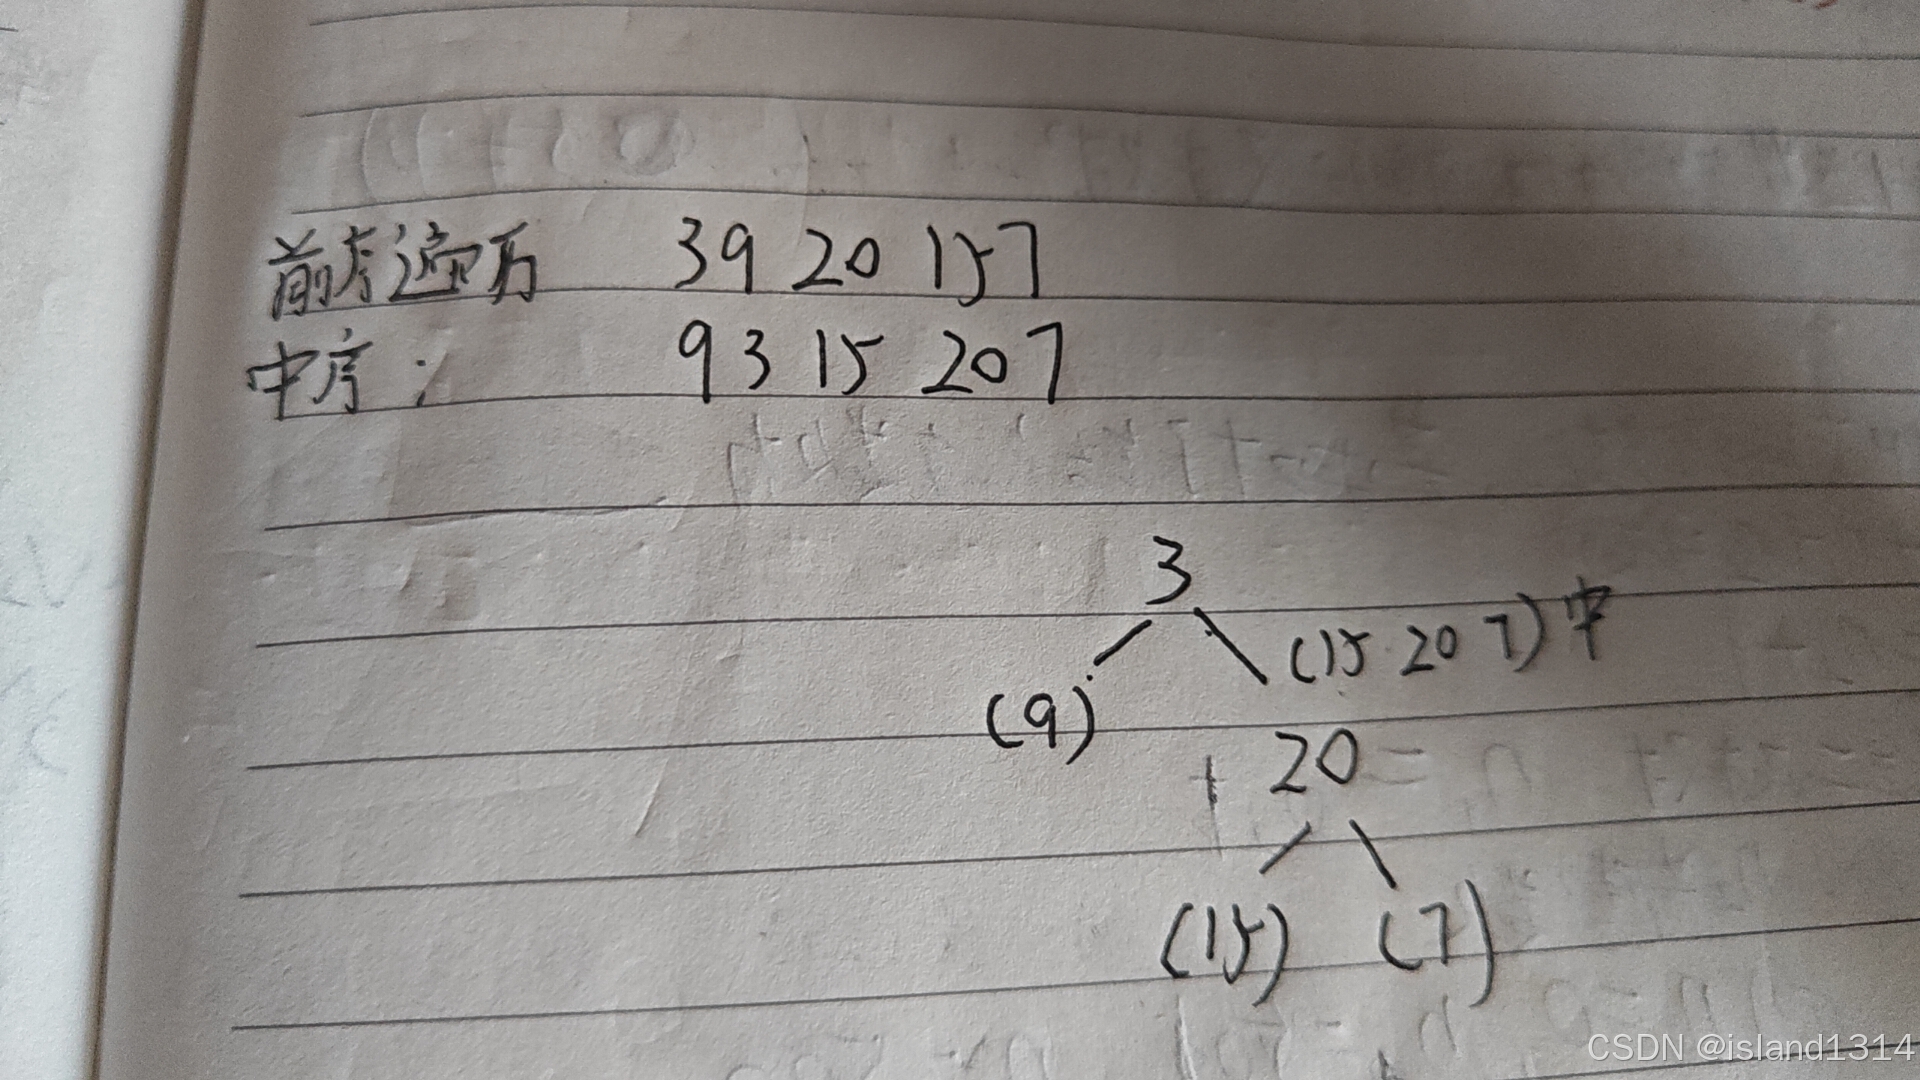 前序遍历 3 9 20 15 7
中序: 9 3 15 20 7
3
(15 20 7)中
(9)
20
(15) (7)
CSDN @island1314